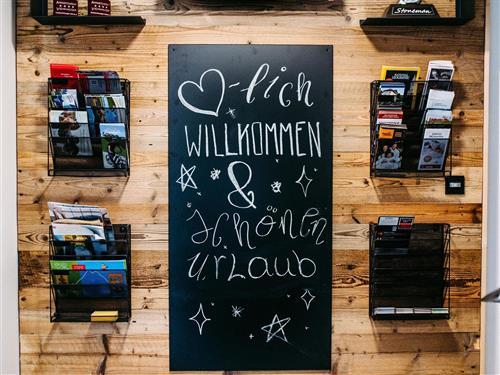 ♡-lich
WILLKOMMEN
&
schönen
urlaub
Stoneman